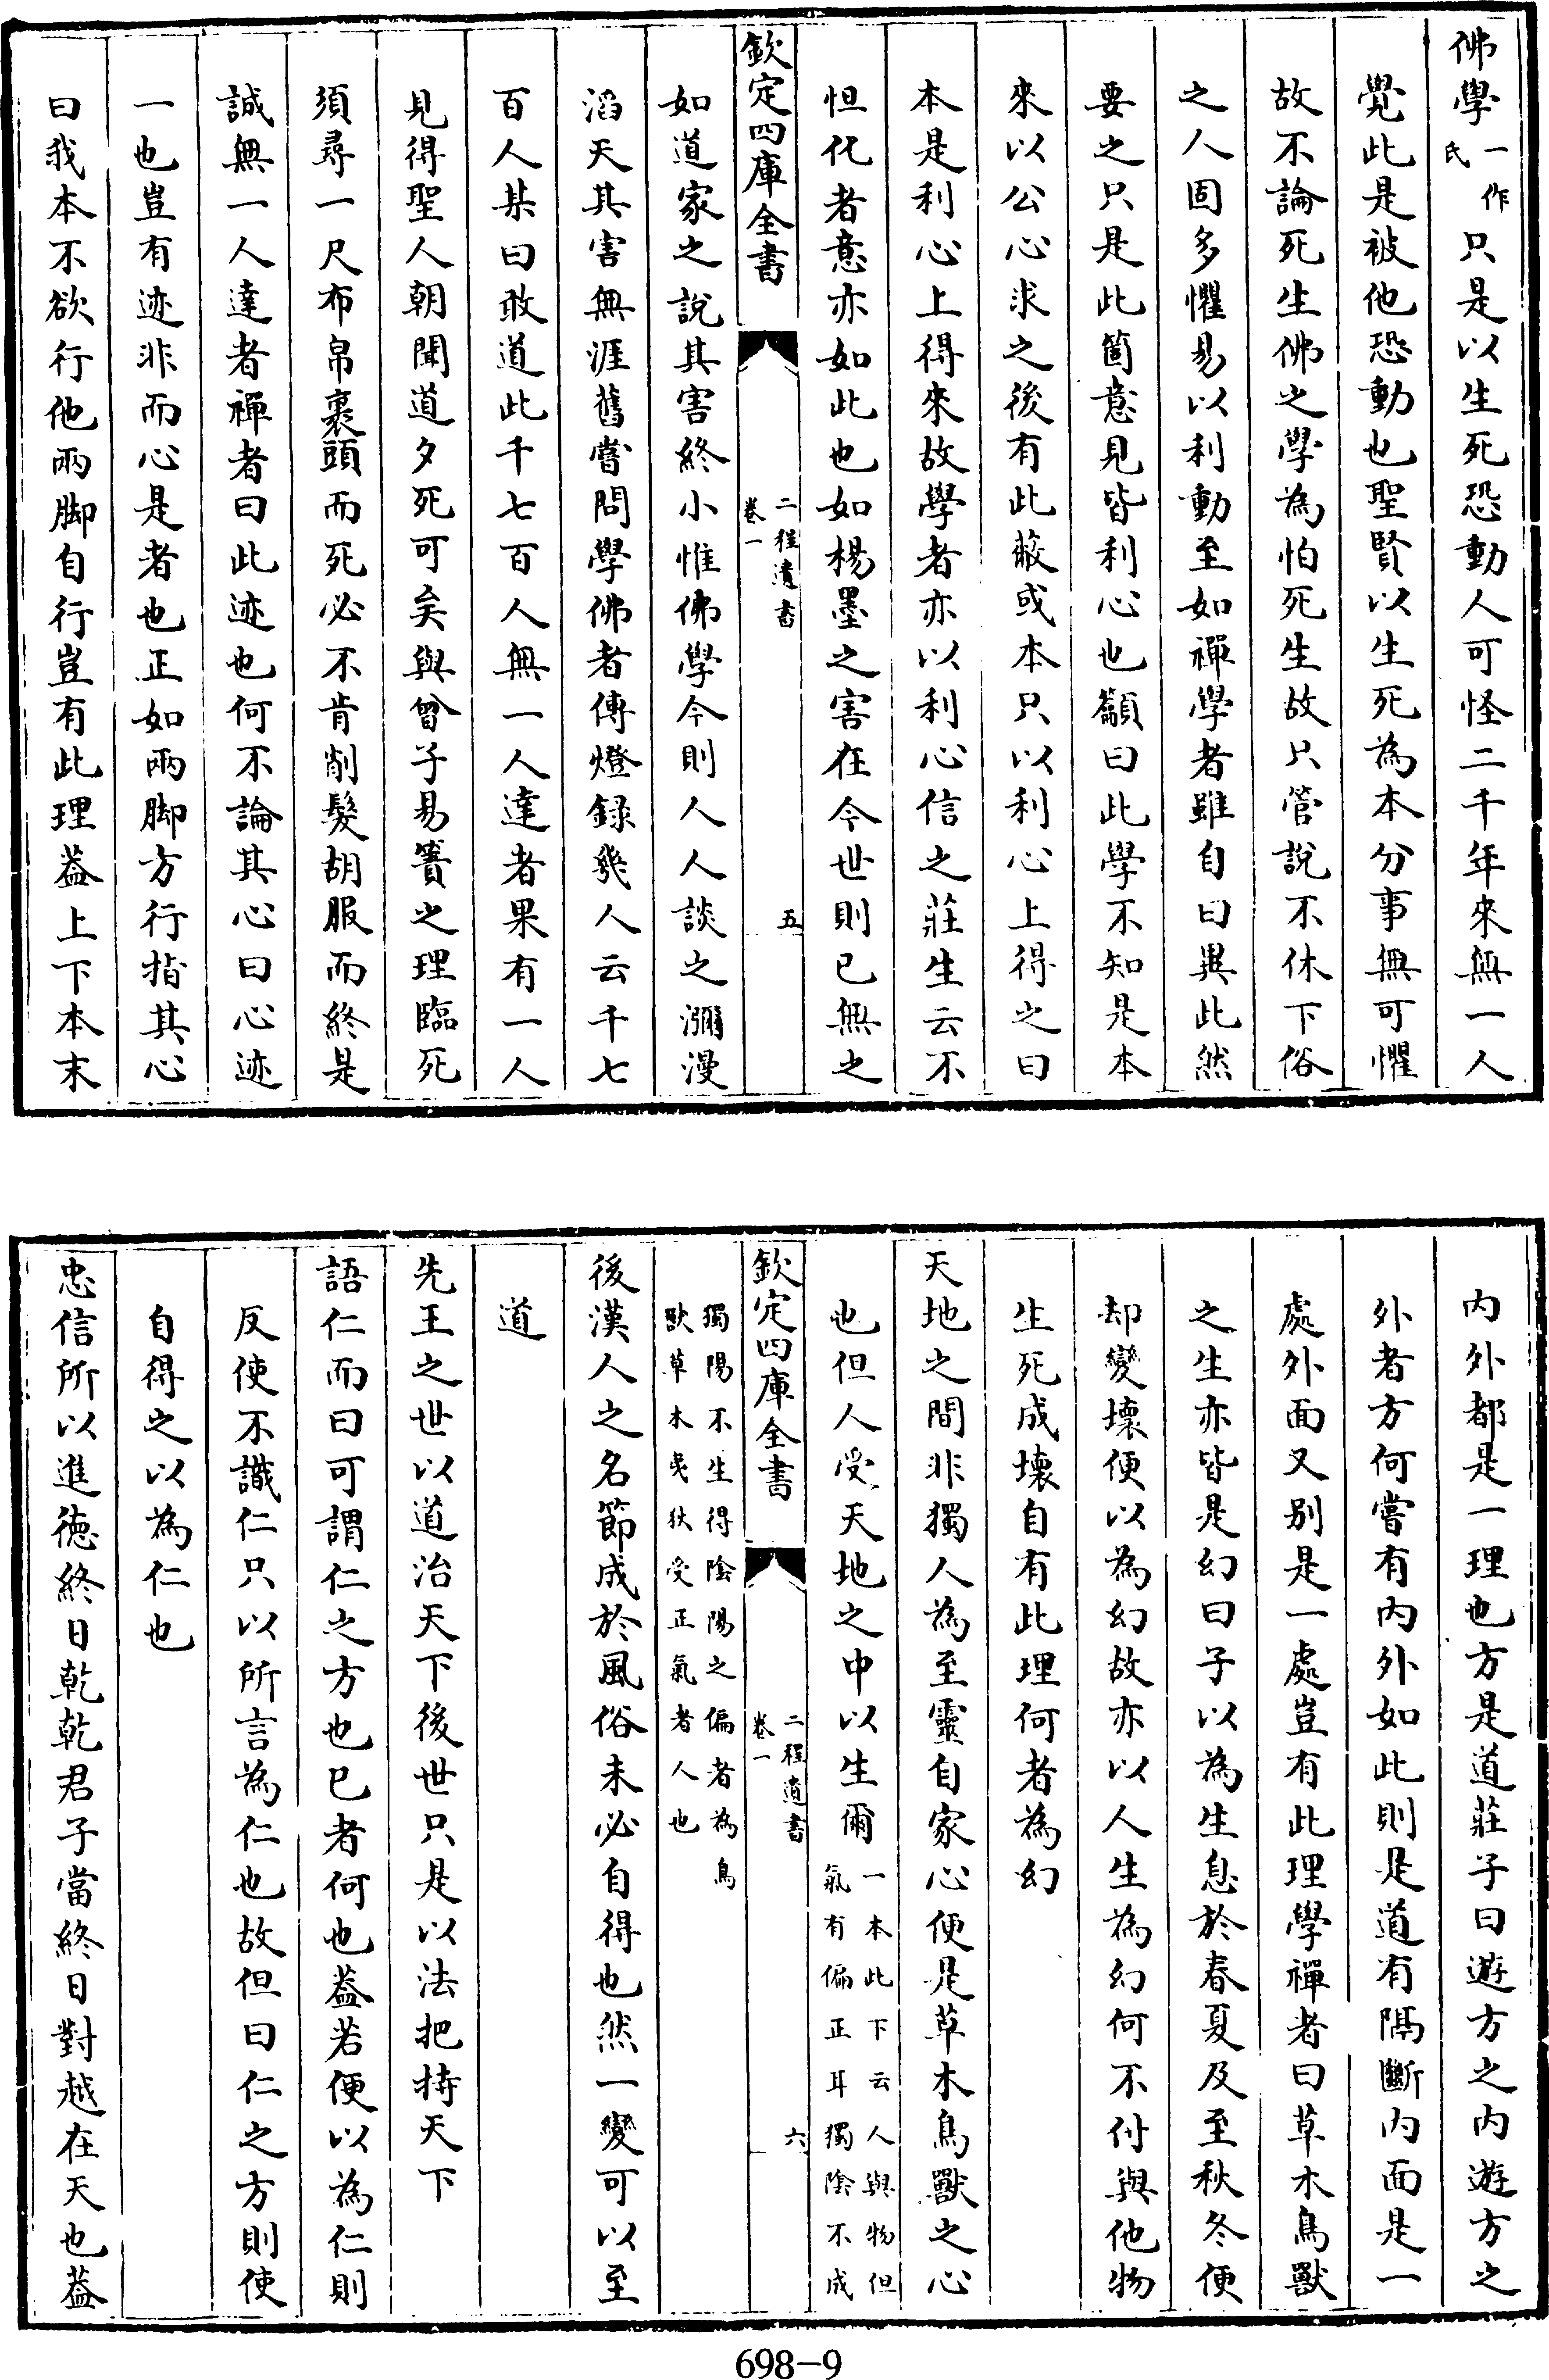 佛學一作氏只是以生死恐動人可怪二千年來無一人
覺此是被他恐動也聖賢以生死為本分事無可懼
故不論死生佛之學為怕死生故只管說不休下俗
之人固多懼易以利動至如禪學者雖自曰異此然
要之只是此箇意見皆利心也籲曰此學不知是本
來以公心求之後有此蔽或本只以利心上得之曰
本是利心上得來故學者亦以利心信之莊生云不
怛化者意亦如此也如楊墨之害在今世則已無之
欽定四庫全書 二程遺書卷一 五
如道家之說其害終小惟佛學今則人人談之瀰漫
滔天其害無涯舊嘗問學佛者傳燈錄幾人云千七
百人某曰敢道此千七百人無一人達者果有一人
見得聖人朝聞道夕死可矣與曾子易簀之理臨死
須尋一尺布帛裹頭而死必不肯削髮胡服而終是
誠無一人達者禪者曰此迹也何不論其心曰心迹
一也豈有迹非而心是者也正如兩脚方行指其心
曰我本不欲行他兩脚自行豈有此理葢上下本末
內外都是一理也方是道莊子曰遊方之內遊方之
外者方何嘗有內外如此則是道有隔斷內面是一
處外面又別是一處豈有此理學禪者曰草木鳥獸
之生亦皆是幻曰子以為生息於春夏及至秋冬便
却變壞便以為幻故亦以人生為幻何不付與他物
生死成壞自有此理何者為幻
天地之間非獨人為至靈自家心便是草木鳥獸之心
也但人受天地之中以生爾一本此下云人與物但氣有偏正耳獨陰不成
欽定四庫全書 二程遺書卷一 六
獨陽不生得陰陽之偏者為鳥獸草木夷狄受正氣者人也
後漢人之名節成於風俗未必自得也然一變可以至
道
先王之世以道治天下後世只是以法把持天下
語仁而曰可謂仁之方也已者何也葢若便以為仁則
反使不識仁只以所言為仁也故但曰仁之方則使
自得之以為仁也
忠信所以進德終日乾乾君子當終日對越在天也葢
698-9